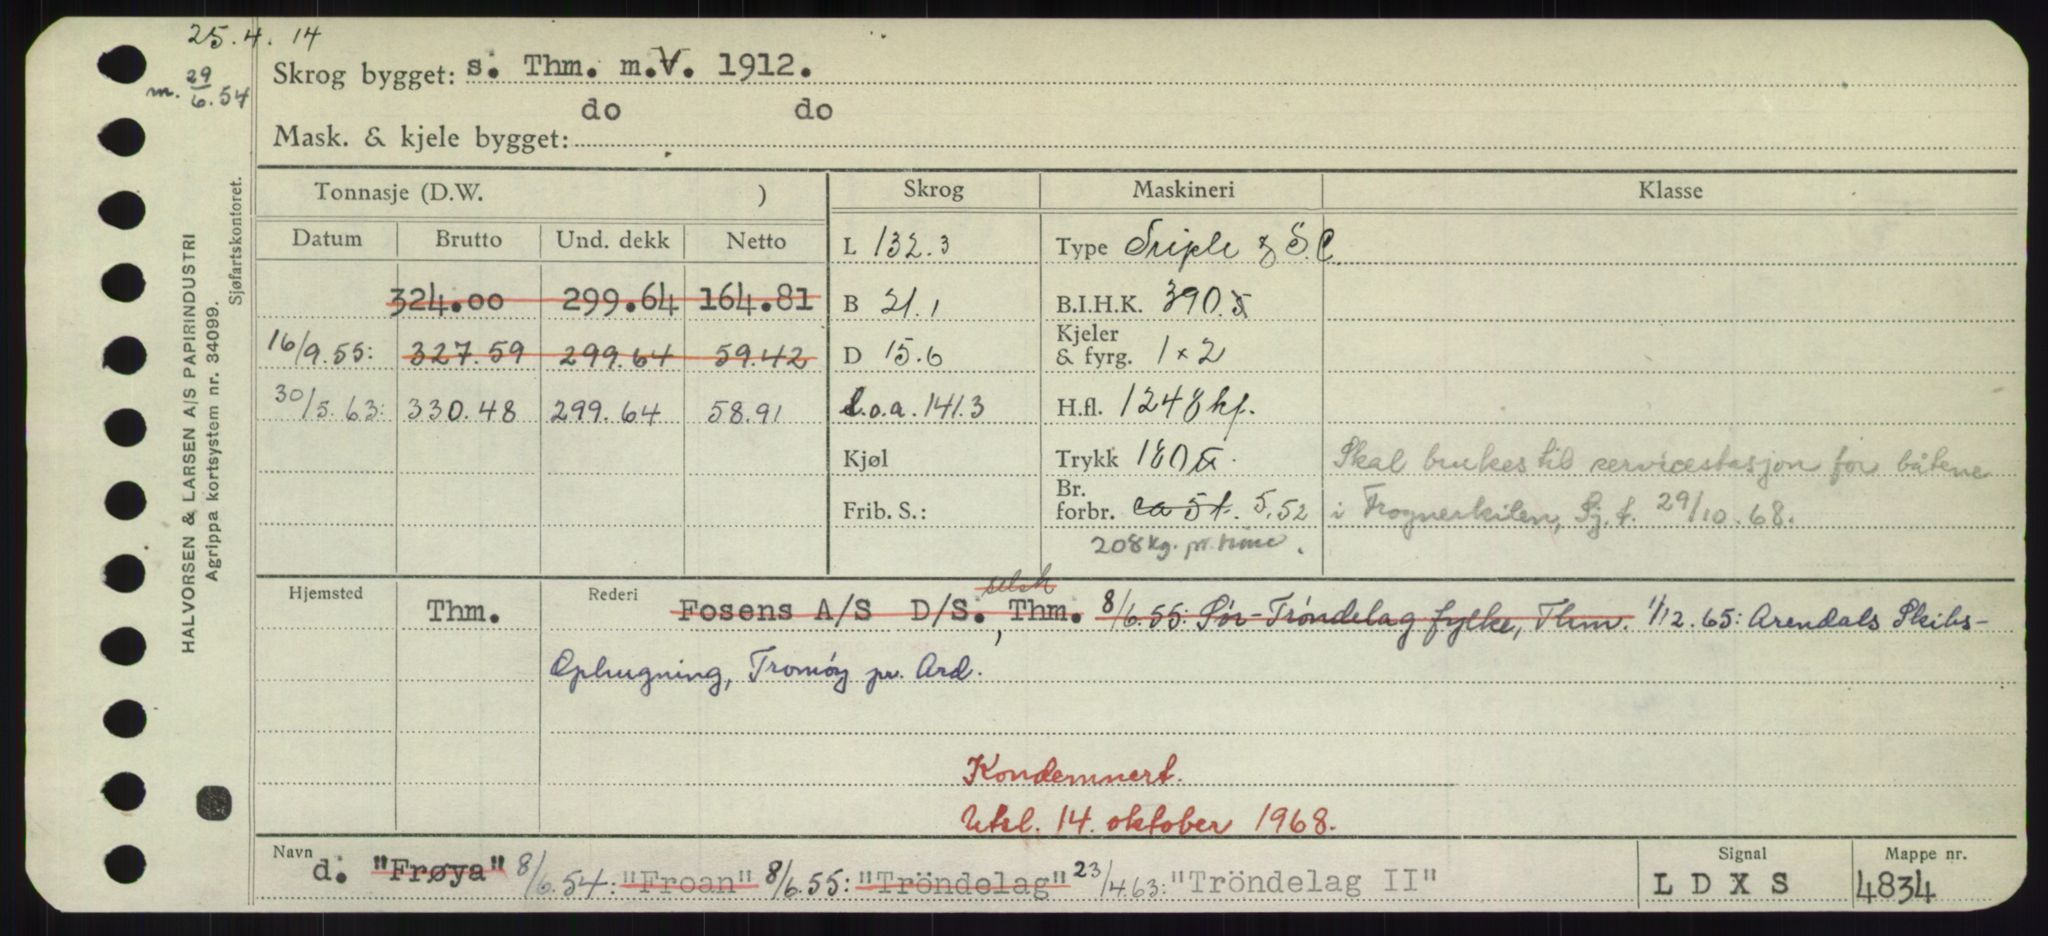 25.4.14
m. 29/6.54
Skrog bygget: s. Thm. m.V. 1912.
do do
Mask. & kjele bygget:
HALVORSEN & LARSEN A/S PAPIRINDUSTRI
Agrippa kortsystem nr. 34099.
Sjøfartskontoret.
Tonnasje (D.W. ) Skrog Maskineri Klasse
Datum Brutto Und. dekk Netto
324.00 299.64 164.81
16/9.55: 327.59 299.64 59.42
30/5.63: 330.48 299.64 58.91
L 132.3
B 21.1
D 15.6
L.o.a. 141.3
Kjøl
Frib. S.:
Type Triple & S.C.
B.I.H.K. 390
Kjeler
& fyrg. 1 x 2
H.fl. 1248 kf.
Trykk 180
Br.
forbr. ca 5 t. 5.52
208 kg. pr. time.
Skal brukes til servicestasjon for båtene
i Frognerkilen, Sj.t. 29/10.68.
selsk
Hjemsted Thm. Rederi Fosens A/S D/S., Thm. 8/6.55: Sør-Tröndelag fylke, Thm. 1/12.65: Arendals Skibs-
Ophugning, Tromöy pr. Ard.
Kondemnert.
Utsl. 14. oktober 1968.
Navn d. "Frøya" 8/6.54: "Froan" 8/6.55: "Tröndelag" 23/4.63: "Tröndelag II"
Signal L D X S
Mappe nr. 4834